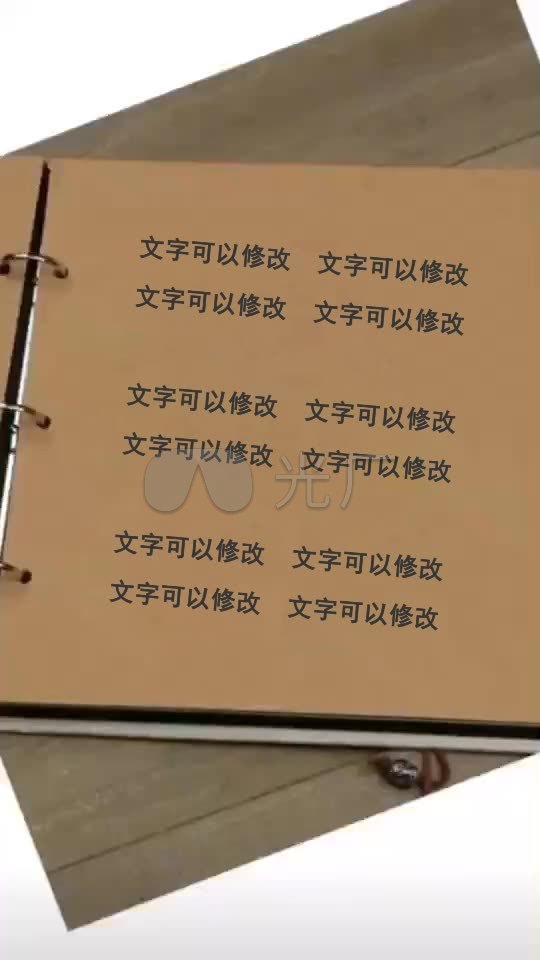 文字可以修改 文字可以修改
文字可以修改 文字可以修改
文字可以修改 文字可以修改
文字可以修改 文字可以修改
光厂
文字可以修改 文字可以修改
文字可以修改 文字可以修改